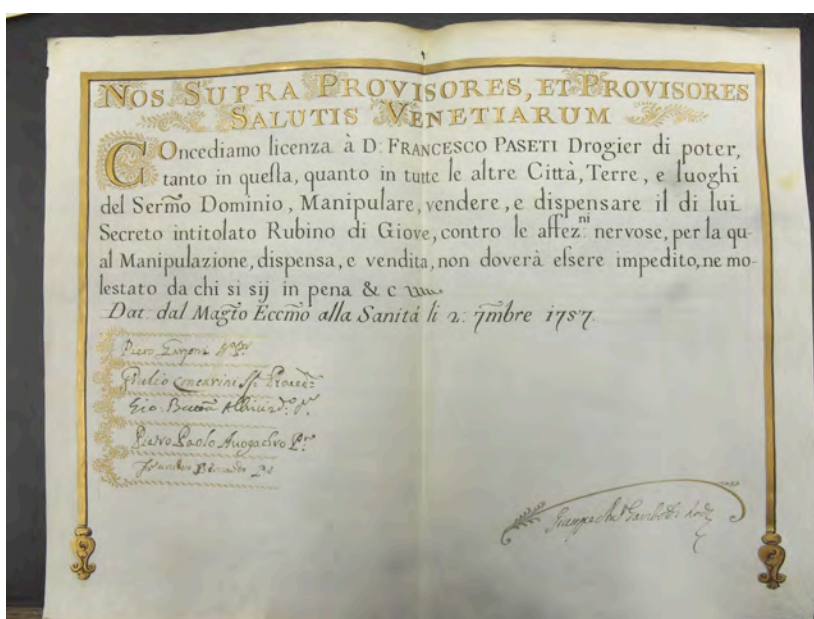 NOS SUPRA PROVISORES, ET PROVISORES
SALUTIS VENETIARUM
COncediamo licenza à D. FRANCESCO PASETI Drogier di poter,
tanto in questa, quanto in tutte le altre Città, Terre, e luoghi
del Sermo Dominio, Manipulare, vendere, e dispensare il di lui
Secreto intitolato Rubino di Giove, contro le affez.ni nervose, per la qu-
al Manipulazione, dispensa, e vendita, non doverà essere impedito, ne mo-
lestato da chi si sij in pena & c
Dat. dal Magto Eccmo alla Sanità li 2. 7mbre 1757.
Piero
Giulio Contarini
Gio. Batta
Pietro Paolo Avogadro